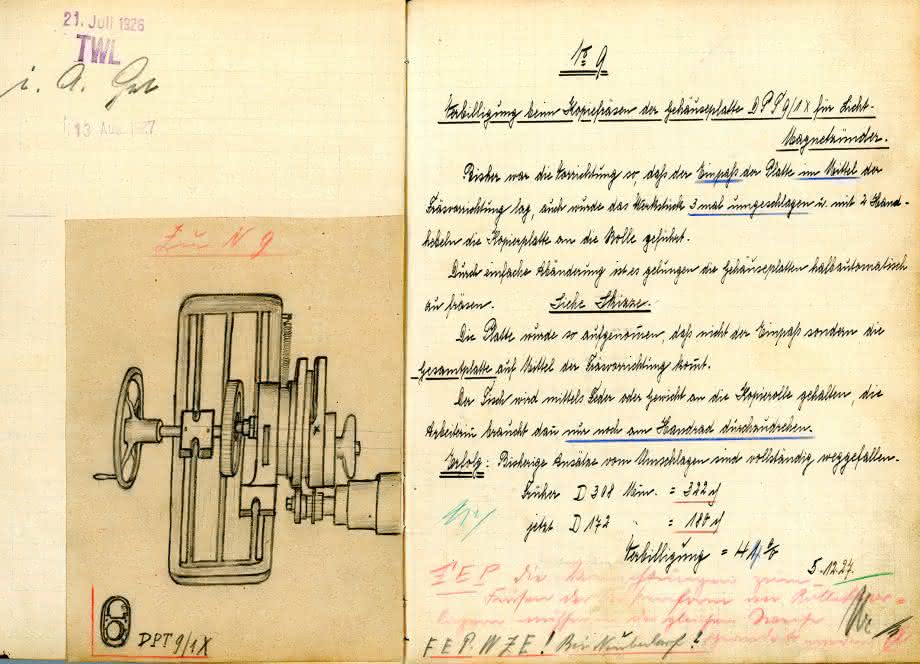 21. Juli 1926
TWL
i. A.
13 Aug. 1927
Zu № 9
DPT 9/1X
№ 9
Verbilligung beim Kopiefräsen der Gehäuseplatte DPT 9/1X für Licht-
Magnetzünder.
Bisher war die Vorrichtung so, daß der Einpaß der Platte im Mittel der
Fräsvorrichtung lag, auch wurde das Werkstück 3 mal umgeschlagen u. mit 2 Hand-
hebeln die Kopierplatte an die Rolle geführt.
Durch einfache Abänderung ist es gelungen die Gehäuseplatten halbautomatisch
zu fräsen. Siehe Skizze.
Die Platte wurde so aufgenommen, daß nicht der Einpaß sondern die
Gesamtplatte auf Mittel der Fräsvorrichtung kommt.
Der Tisch wird mittels Feder oder Gewicht an die Kopierolle gehalten, die
Arbeiterin braucht dan nur noch am Handrad durchzudrehen.
Erfolg: Bisherige Ansätze vom Umschlagen sind vollständig weggefallen.
Früher D 308 Min. = 322
jetzt D 172 " = 180
Verbilligung = 41 %
5.12.27.
FEP die zum
Fräsen der der
der gleichen
FEP. WZE! Bei Neubedarf!